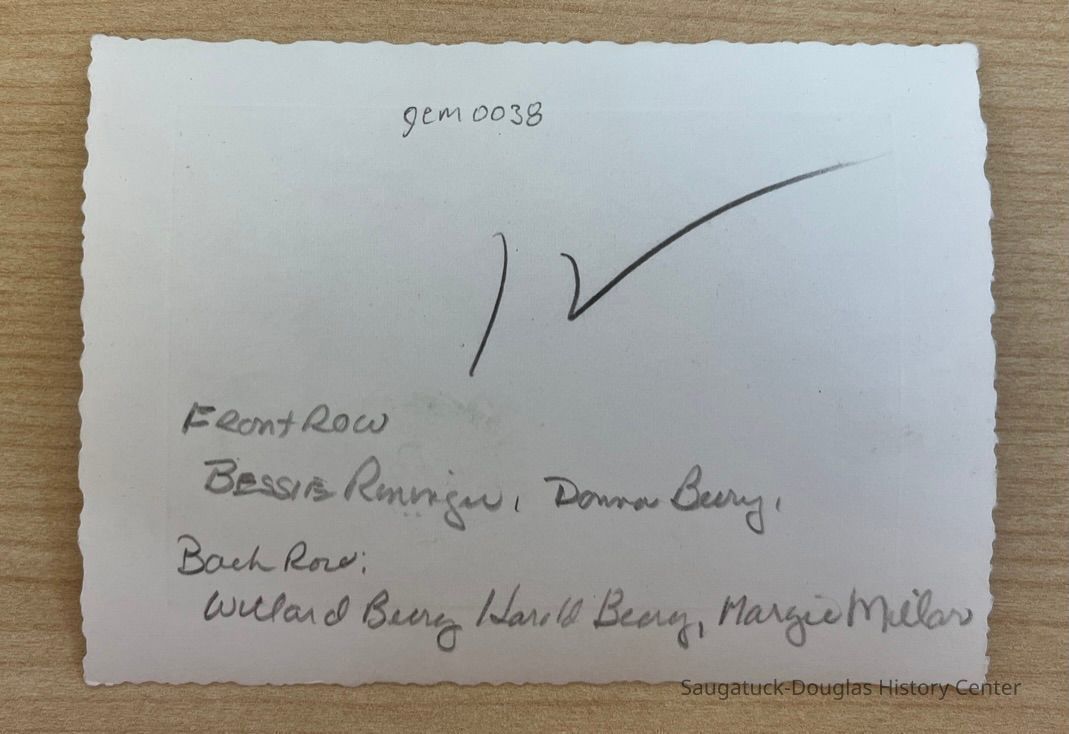 gem0038
Front Row
Bessie Reninger, Donna Beery,
Back Row:
Willard Beery Harold Beery, Margie Millar
Saugatuck-Douglas History Center